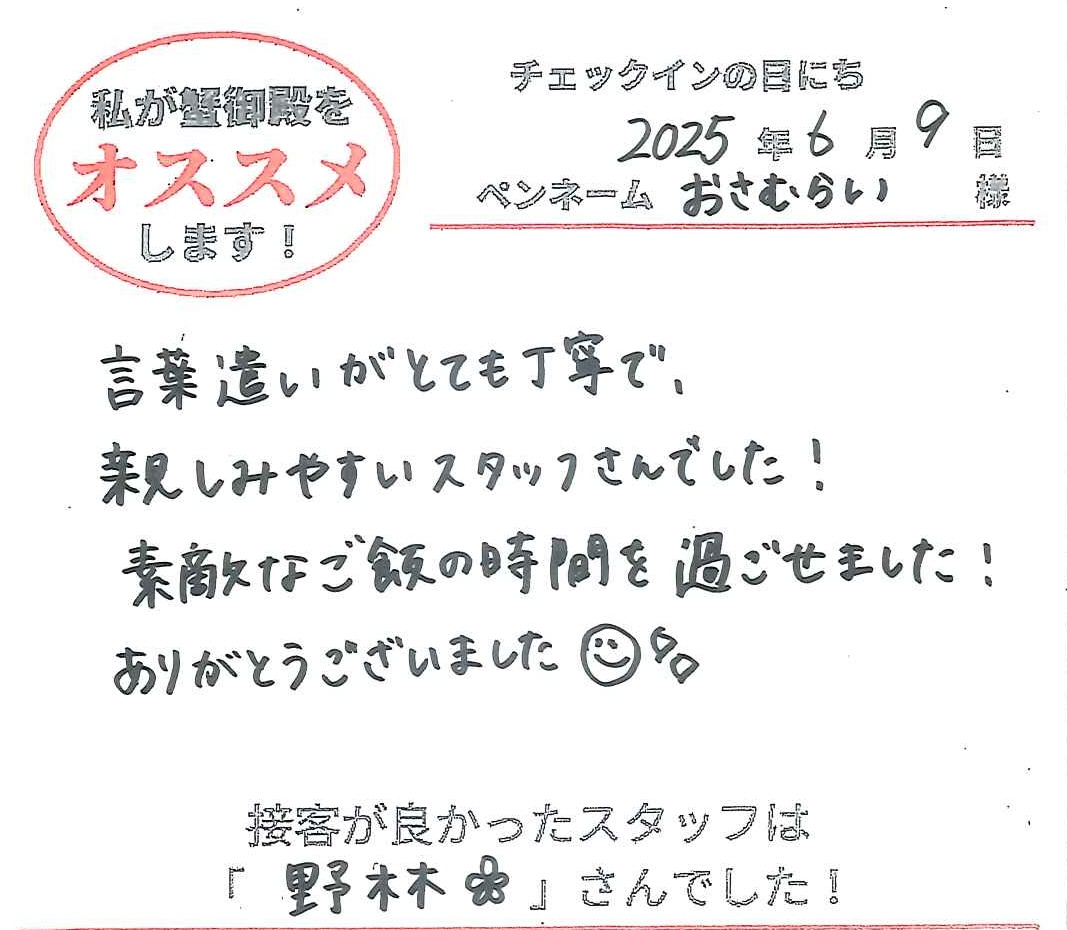 私が蟹御殿を
オススメ
します！
チェックインの日にち
2025年6月9日
ペンネーム おさむらい 様
言葉遣いがとても丁寧で、
親しみやすいスタッフさんでした！
素敵なご飯の時間を過ごせました！
ありがとうございました
接客が良かったスタッフは
「野林」さんでした！